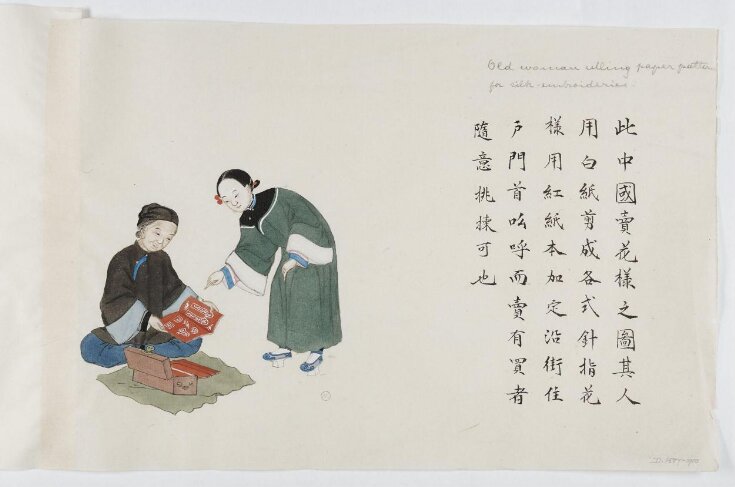 Old woman selling paper pattern
for silk embroideries.
此中國賣花樣之圖其人
用白紙剪成各式針指花
樣用紅紙本加定沿街住
戶門首吆呼而賣有買者
隨意挑揀可也